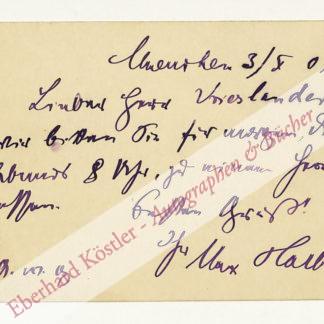 Muenchen 3/X 0
Lieber Herr Vrieslander
wir bitten Sie für morgen,
Abends 8 Uhr, zu einem
Besten Gruß!
Ihr Max Halbe
Eberhard Köstler - Autographen & Bücher